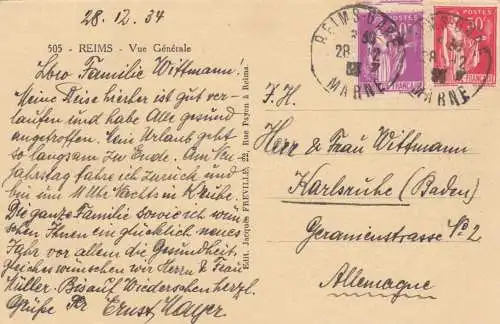 28.12.34
505 - REIMS - Vue Générale
Lbro Familie Wittmann!
Meine Reise hierher ist gut ver-
laufen und habe Alle gesund
angetroffen. Ein Urlaub geht
so langsam zu Ende. Am Neu-
jahrstag fahre ich zurück und
bin um 11 Uhr Nachts in K'ruhe.
Die ganze Familie sowie ich wün-
schen Ihnen ein glücklich neues
Jahr vor allem die Gesundheit.
Gleiches wünschen wir Herrn & Frau
Müller. Bis auf Wiedersehen herzl.
Grüße Ihr Ernst Mayer
Edit. Jacques FRÉVILLE, 22, Rue Payen à Reims
REIMS-GARE
28
MARNE
MARNE
POSTES
50c
F. H.
Herr & Frau Wittmann
Karlsruhe (Baden)
Geranienstrasse No 2
Allemagne